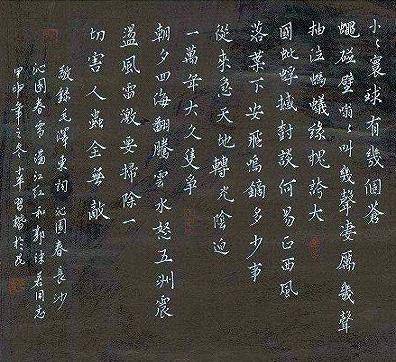 小々寰球有幾個蒼
蠅碰壁嗡々叫幾聲淒厲幾聲
抽泣螞蟻緣槐誇大
國蚍蜉撼樹談何易正西風
落葉下安飛鳴鏑多少事
從來急天地轉光陰迫
一萬年大久隻爭
朝夕四海翻騰雲水怒五洲震
盪風雷激要掃除一
切害人蟲全無敵
敬錄毛澤東詞沁園春長沙
沁園春雪滿江紅和郭沫若同志
甲申年之冬